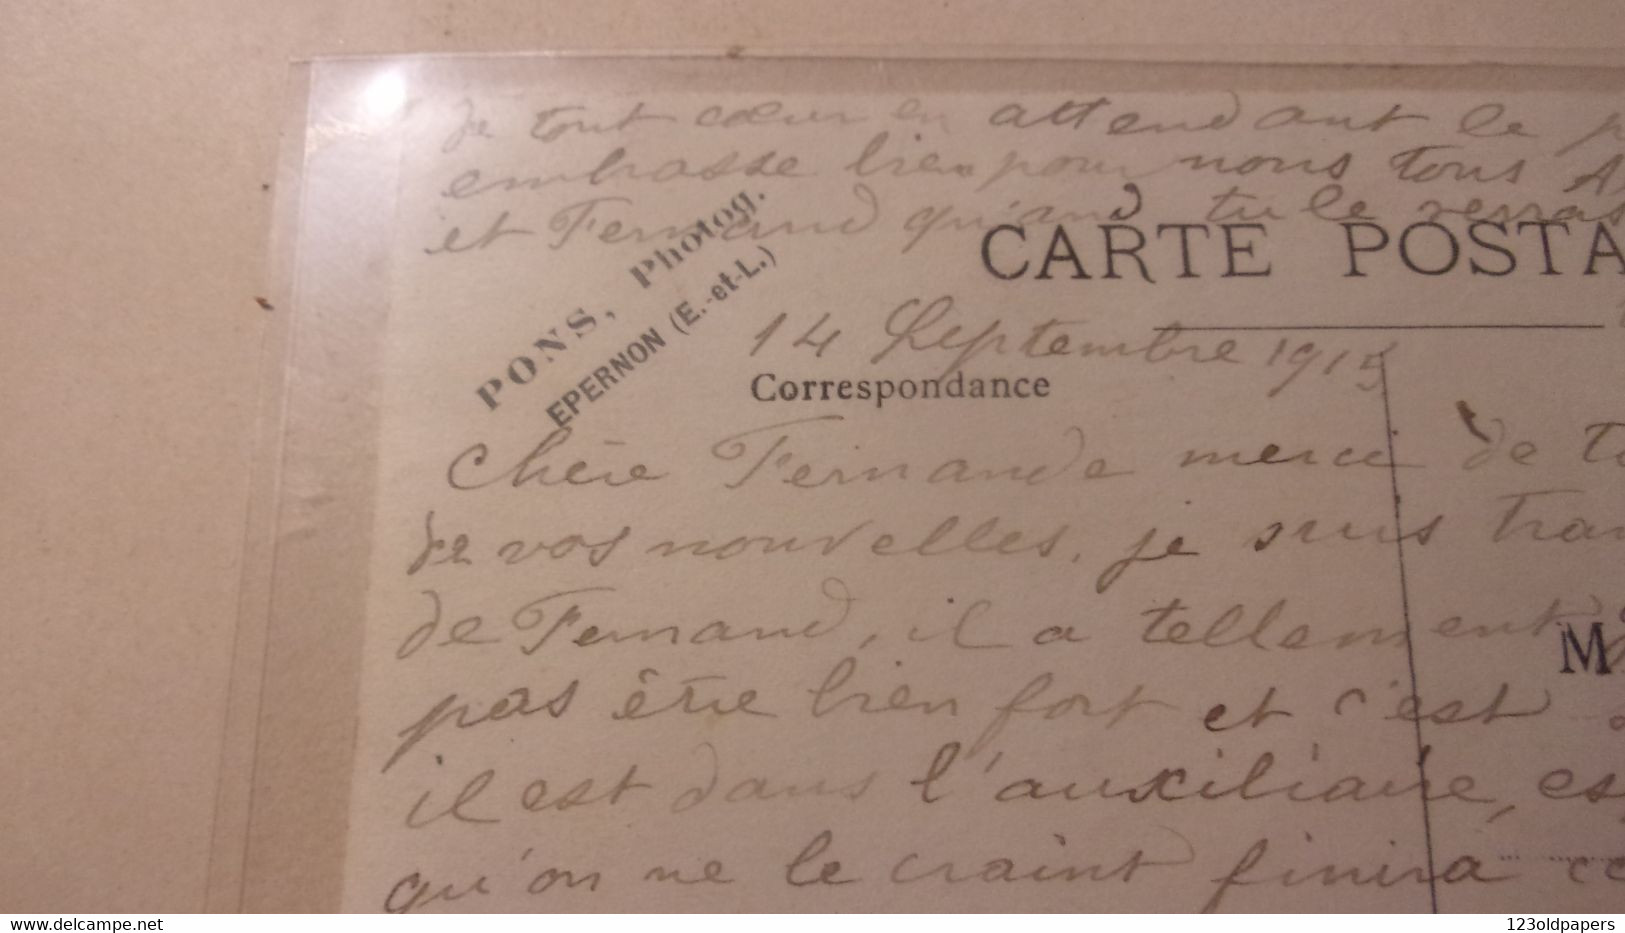 de tout cœur en attendant le
embrasse bien pour nous tous
et Fernand qu'and tu le verras
CARTE POSTA
PONS, Photog.
EPERNON (E.-et-L.)
14 Septembre 1915
Correspondance
Chère Fernande merci de
de vos nouvelles, je suis tran
de Fernand, il a tellement
M
pas être bien fort et c'est
il est dans l'auxiliaire, es
qu'on ne le craint finira ce
www.delcampe.net
123oldpapers